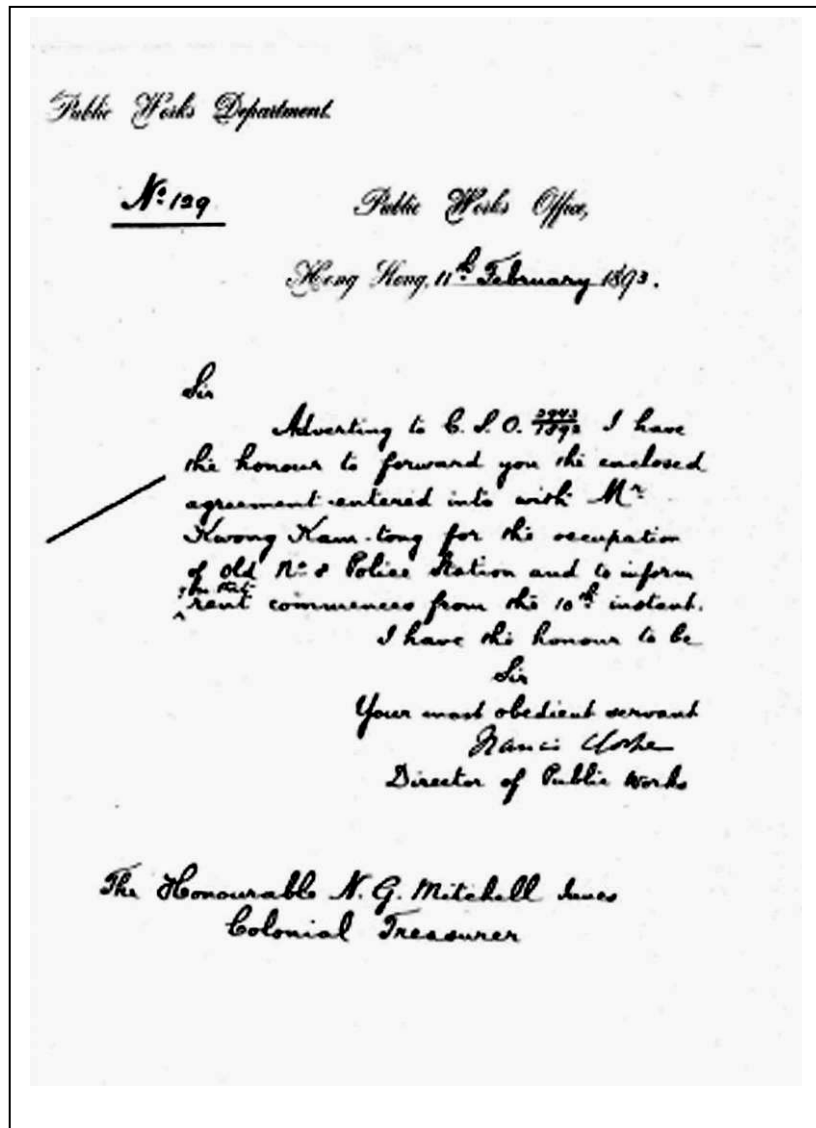 Public Works Department.
No. 129
Public Works Office,
Hong Kong, 11th February 1893.
Sir
Adverting to C. S. O. I have
the honour to forward you the enclosed
agreement entered into with Mr.
Kwong Kam-tong for the occupation
of Old No. 8 Police Station and to inform
you that
rent commences from the 10th instant.
I have the honour to be
Sir
Your most obedient servant
Francis
Director of Public Works
The Honourable N. G. Mitchell Innes
Colonial Treasurer